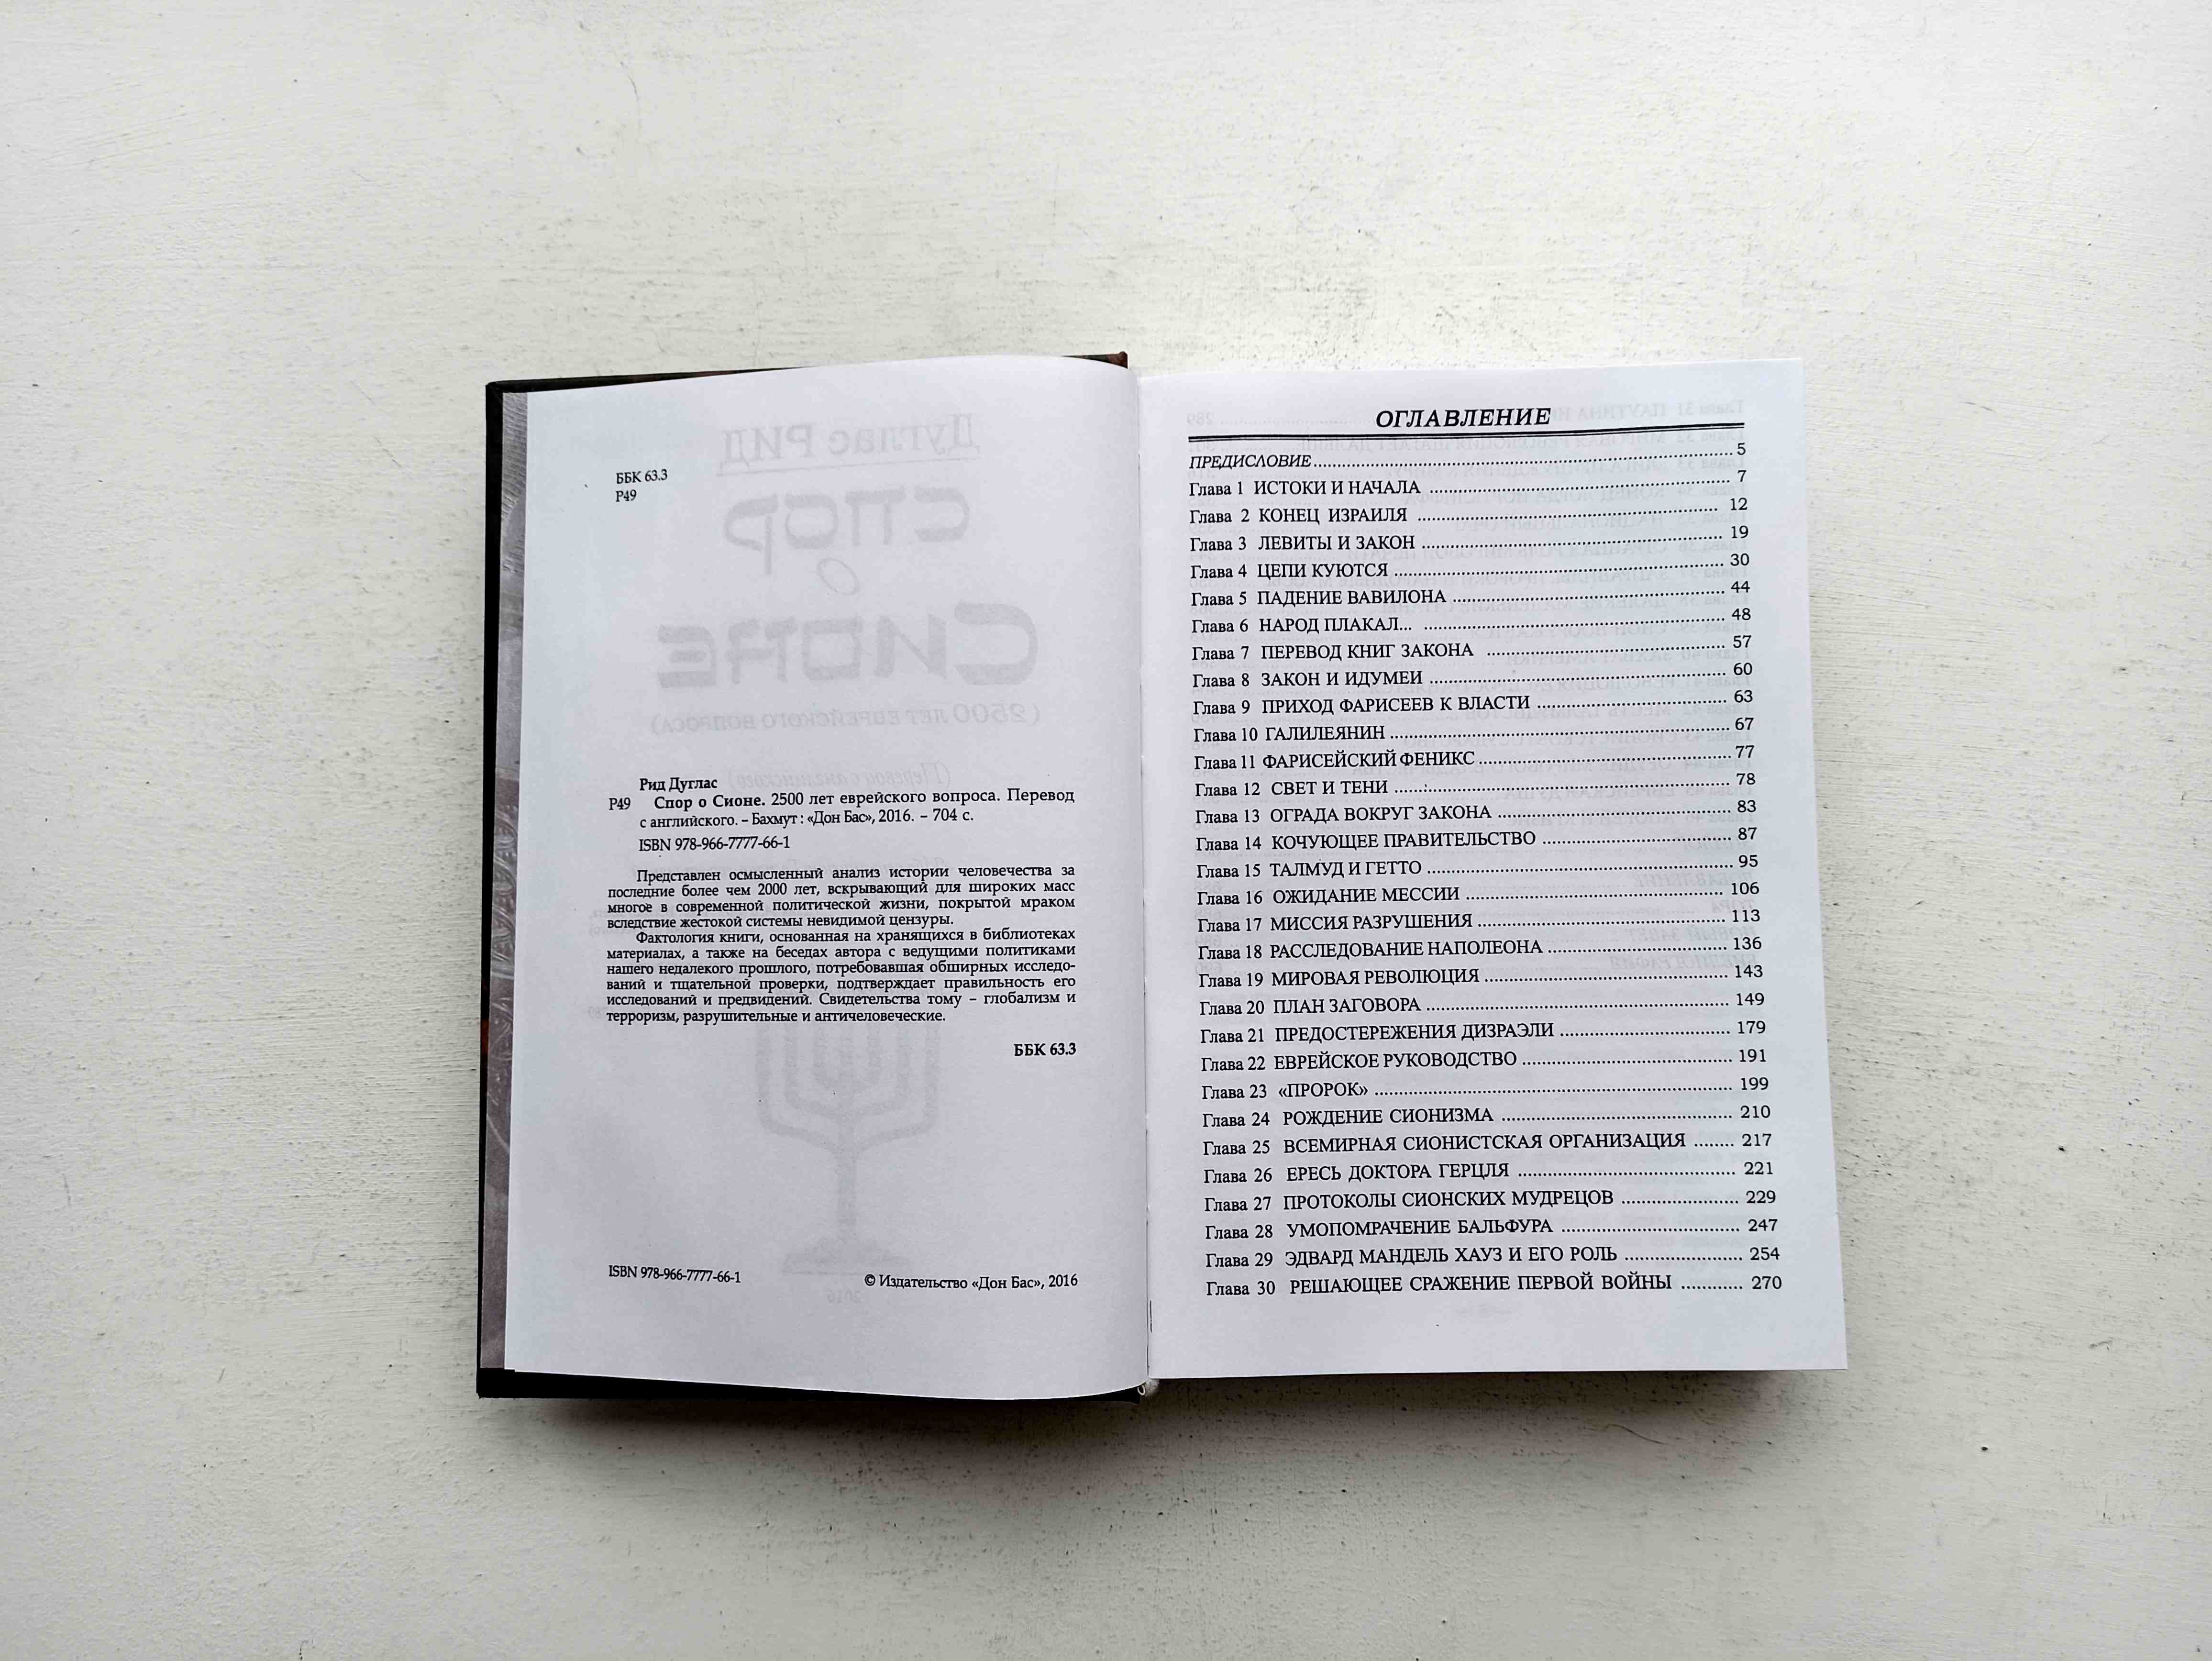 ББК 63.3
Р49
Рид Дуглас
Р49 Спор о Сионе. 2500 лет еврейского вопроса. Перевод
с английского. – Бахмут : «Дон Бас», 2016. – 704 с.
ISBN 978-966-7777-66-1
Представлен осмысленный анализ истории человечества за
последние более чем 2000 лет, вскрывающий для широких масс
многое в современной политической жизни, покрытой мраком
вследствие жестокой системы невидимой цензуры.
Фактология книги, основанная на хранящихся в библиотеках
материалах, а также на беседах автора с ведущими политиками
нашего недалекого прошлого, потребовавшая обширных исследо-
ваний и тщательной проверки, подтверждает правильность его
исследований и предвидений. Свидетельства тому – глобализм и
терроризм, разрушительные и античеловеческие.
ББК 63.3
ISBN 978-966-7777-66-1
© Издательство «Дон Бас», 2016
ОГЛАВЛЕНИЕ
ПРЕДИСЛОВИЕ ..... 5
Глава 1 ИСТОКИ И НАЧАЛА ..... 7
Глава 2 КОНЕЦ ИЗРАИЛЯ ..... 12
Глава 3 ЛЕВИТЫ И ЗАКОН ..... 19
Глава 4 ЦЕПИ КУЮТСЯ ..... 30
Глава 5 ПАДЕНИЕ ВАВИЛОНА ..... 44
Глава 6 НАРОД ПЛАКАЛ... ..... 48
Глава 7 ПЕРЕВОД КНИГ ЗАКОНА ..... 57
Глава 8 ЗАКОН И ИДУМЕИ ..... 60
Глава 9 ПРИХОД ФАРИСЕЕВ К ВЛАСТИ ..... 63
Глава 10 ГАЛИЛЕЯНИН ..... 67
Глава 11 ФАРИСЕЙСКИЙ ФЕНИКС ..... 77
Глава 12 СВЕТ И ТЕНИ ..... 78
Глава 13 ОГРАДА ВОКРУГ ЗАКОНА ..... 83
Глава 14 КОЧУЮЩЕЕ ПРАВИТЕЛЬСТВО ..... 87
Глава 15 ТАЛМУД И ГЕТТО ..... 95
Глава 16 ОЖИДАНИЕ МЕССИИ ..... 106
Глава 17 МИССИЯ РАЗРУШЕНИЯ ..... 113
Глава 18 РАССЛЕДОВАНИЕ НАПОЛЕОНА ..... 136
Глава 19 МИРОВАЯ РЕВОЛЮЦИЯ ..... 143
Глава 20 ПЛАН ЗАГОВОРА ..... 149
Глава 21 ПРЕДОСТЕРЕЖЕНИЯ ДИЗРАЭЛИ ..... 179
Глава 22 ЕВРЕЙСКОЕ РУКОВОДСТВО ..... 191
Глава 23 «ПРОРОК» ..... 199
Глава 24 РОЖДЕНИЕ СИОНИЗМА ..... 210
Глава 25 ВСЕМИРНАЯ СИОНИСТСКАЯ ОРГАНИЗАЦИЯ ..... 217
Глава 26 ЕРЕСЬ ДОКТОРА ГЕРЦЛЯ ..... 221
Глава 27 ПРОТОКОЛЫ СИОНСКИХ МУДРЕЦОВ ..... 229
Глава 28 УМОПОМРАЧЕНИЕ БАЛЬФУРА ..... 247
Глава 29 ЭДВАРД МАНДЕЛЬ ХАУЗ И ЕГО РОЛЬ ..... 254
Глава 30 РЕШАЮЩЕЕ СРАЖЕНИЕ ПЕРВОЙ ВОЙНЫ ..... 270